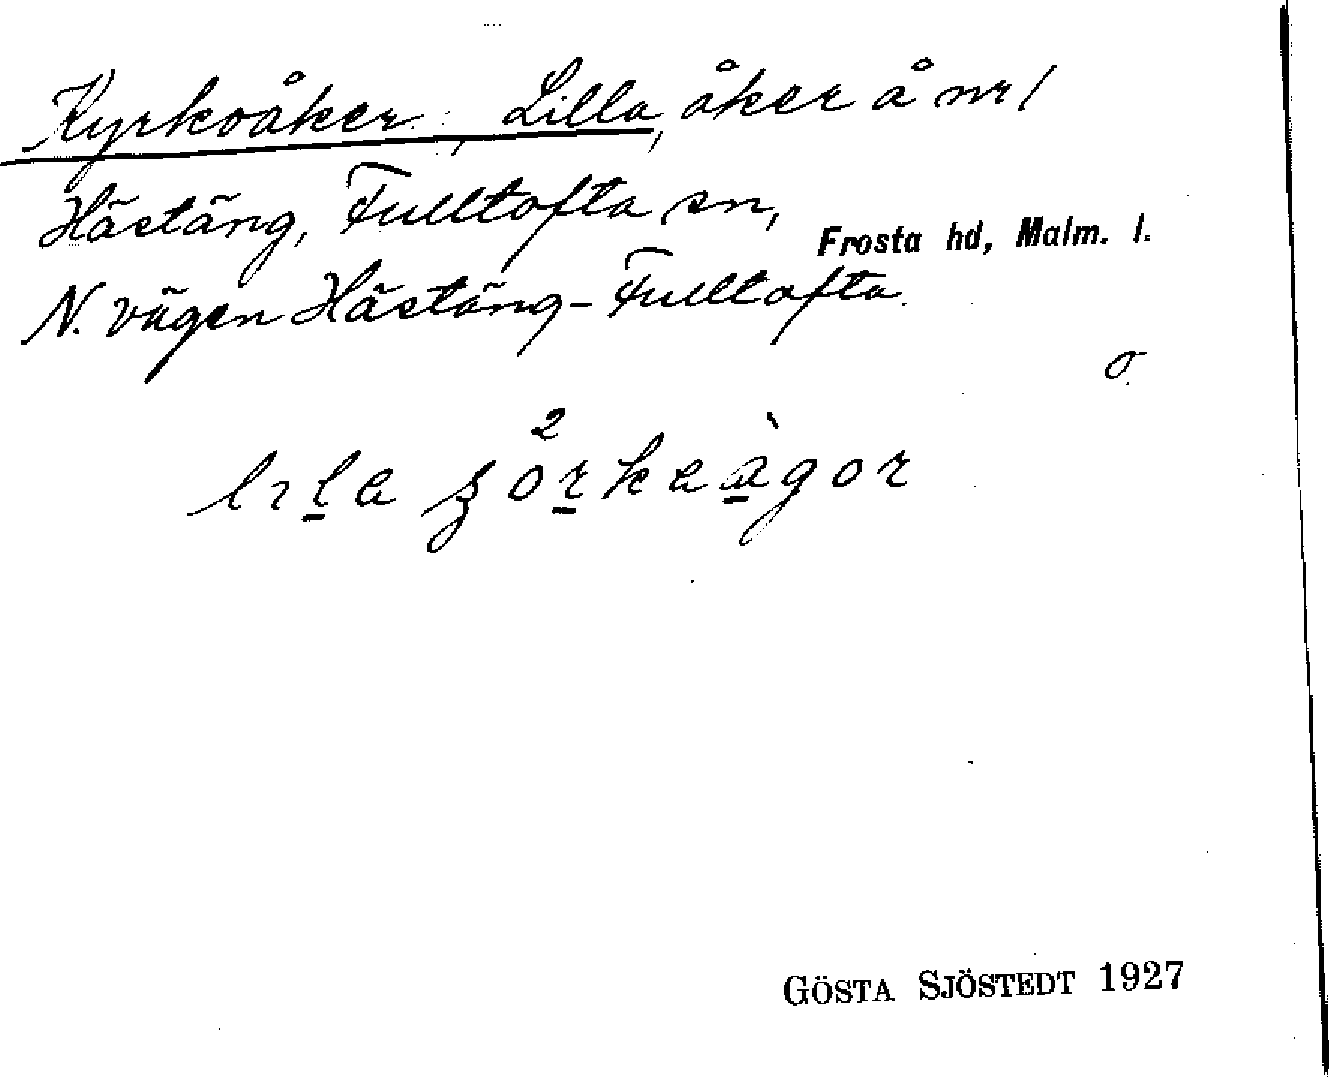 Kyrkoåker, Lilla, åker å nr 1
Hästäng, Fulltofta sn, Frosta hd, Malm. l.
N. vägen Hästäng-Fulltofta.
GÖSTA SJÖSTEDT 1927